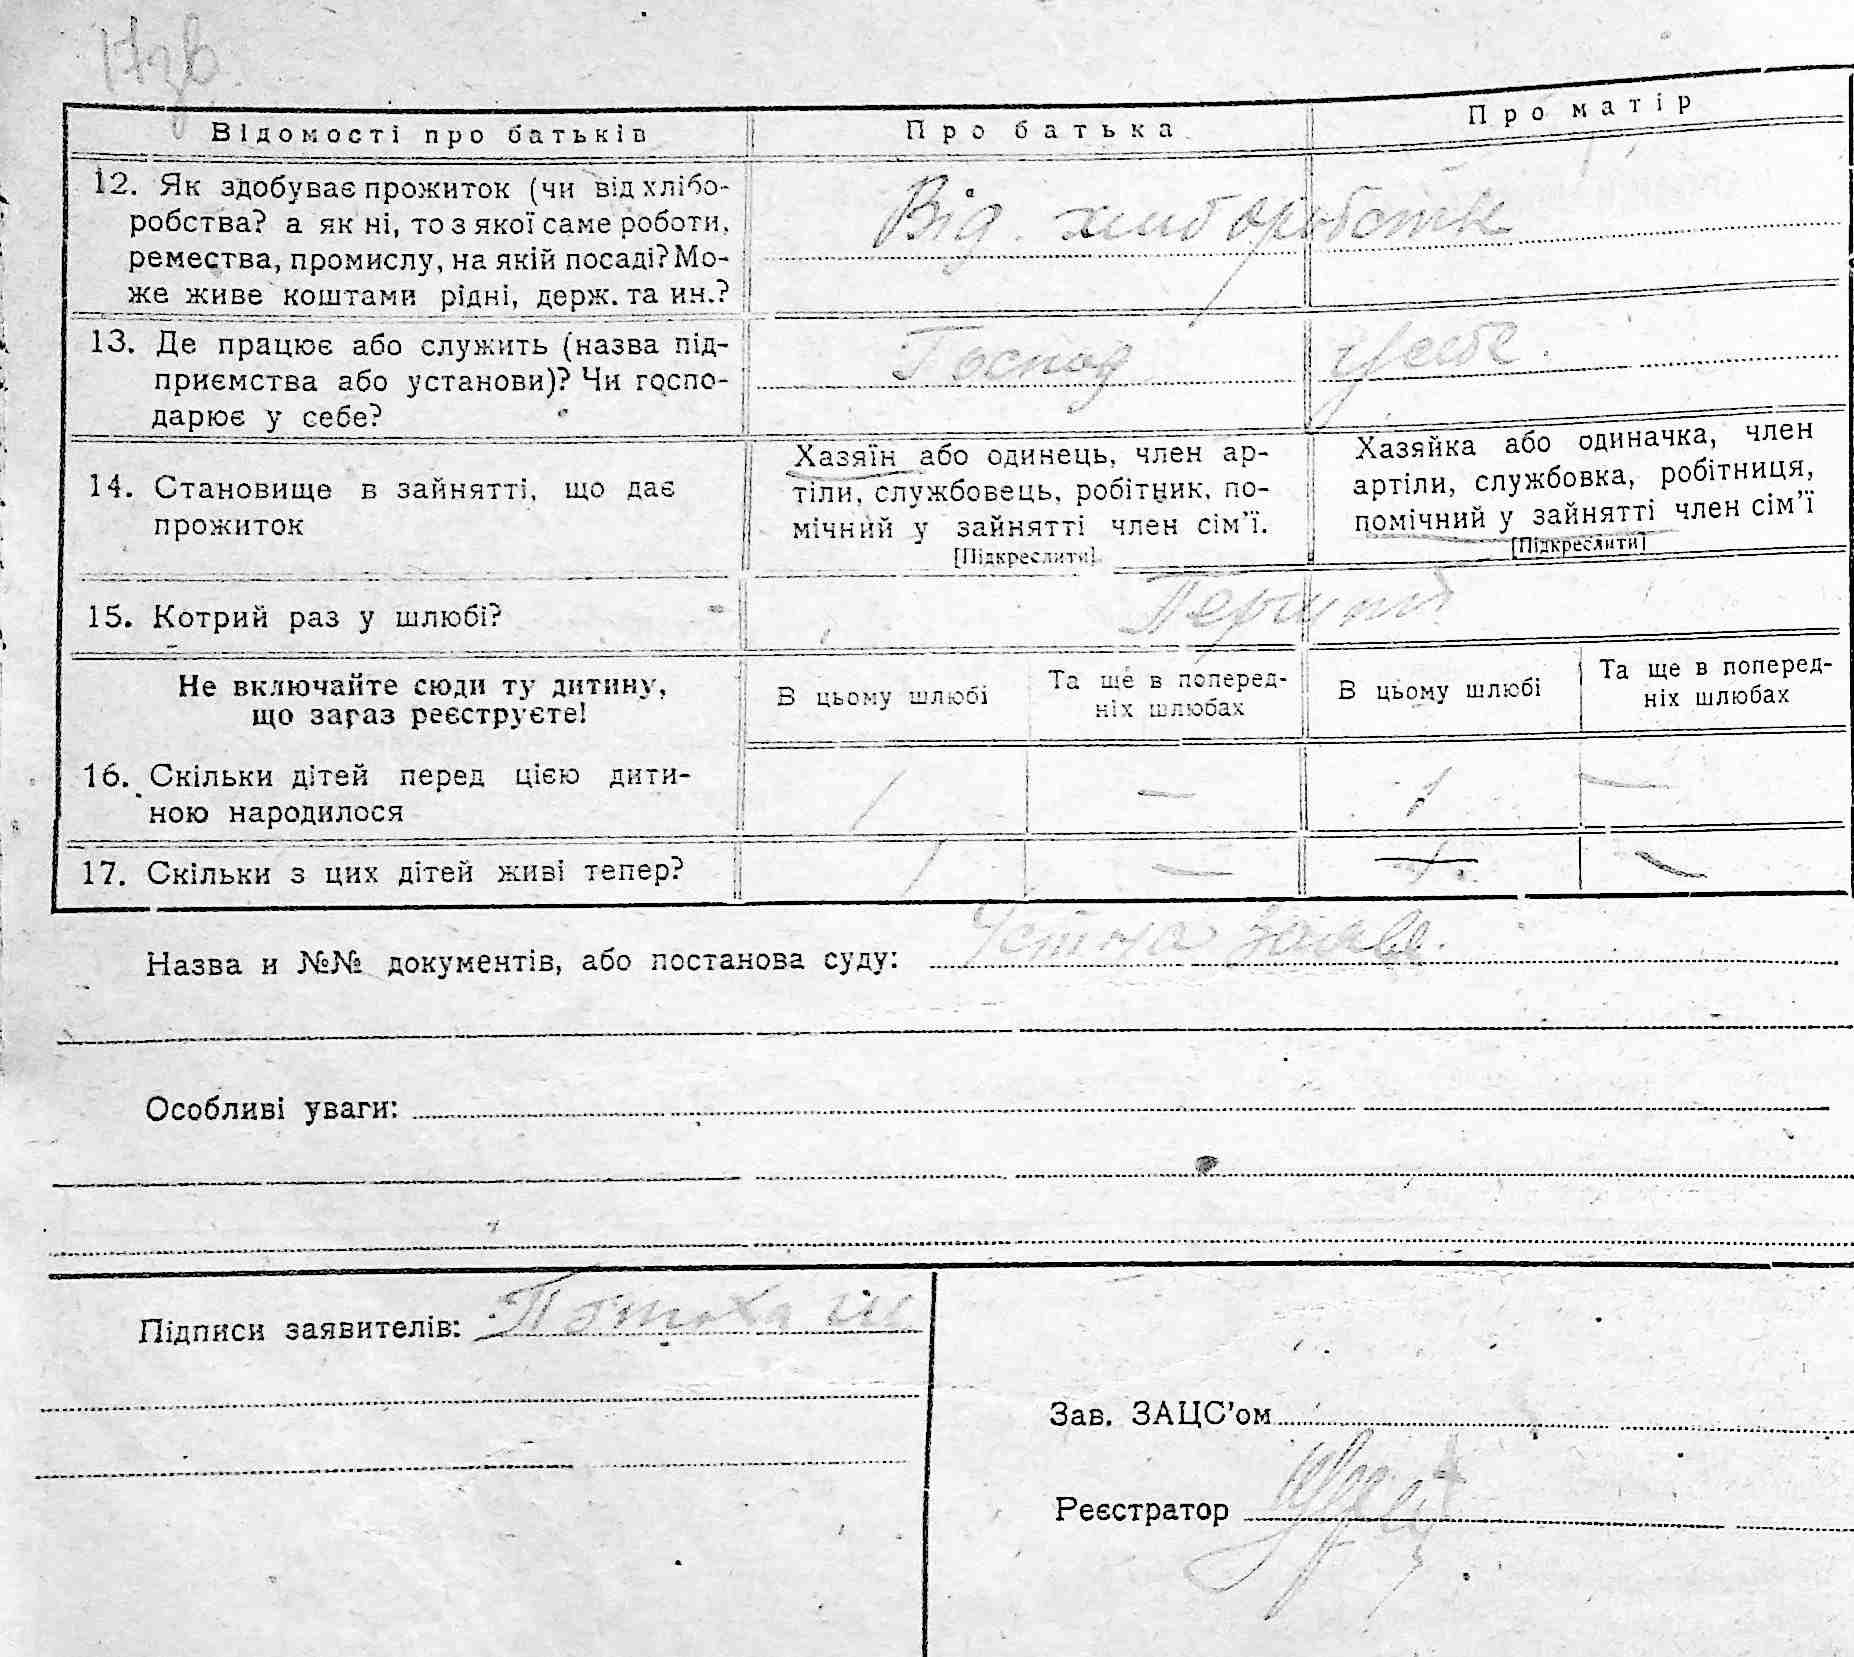 17зв.
Відомості про батьків
Про батька
Про матір
12. Як здобуває прожиток (чи від хлібо-
робства? а як ні, то з якої саме роботи,
ремества, промислу, на якій посаді? Мо-
же живе коштами рідні, держ. та ин.?
Від. хліборобств
13. Де працює або служить (назва під-
приємства або установи)? Чи госпо-
дарює у себе?
Господ у себе.
14. Становище в зайнятті, що дає
прожиток
Хазяїн або одинець, член ар-
тіли, службовець, робітник, по-
мічний у зайнятті член сім'ї.
[Підкреслити]
Хазяйка або одиначка, член
артіли, службовка, робітниця,
помічний у зайнятті член сім'ї
[Підкреслити]
15. Котрий раз у шлюбі?
Не включайте сюди ту дитину,
що зараз реєструєте!
В цьому шлюбі
Та ще в поперед-
ніх шлюбах
В цьому шлюбі
Та ще в поперед-
ніх шлюбах
16. Скільки дітей перед цією дити-
ною народилося
1 — 1 —
17. Скільки з цих дітей живі тепер?
1 — 1. —
Назва и №№ документів, або постанова суду: Устна заява.
Особливі уваги:
Підписи заявителів: Потоха
Зав. ЗАЦС'ом
Реєстратор